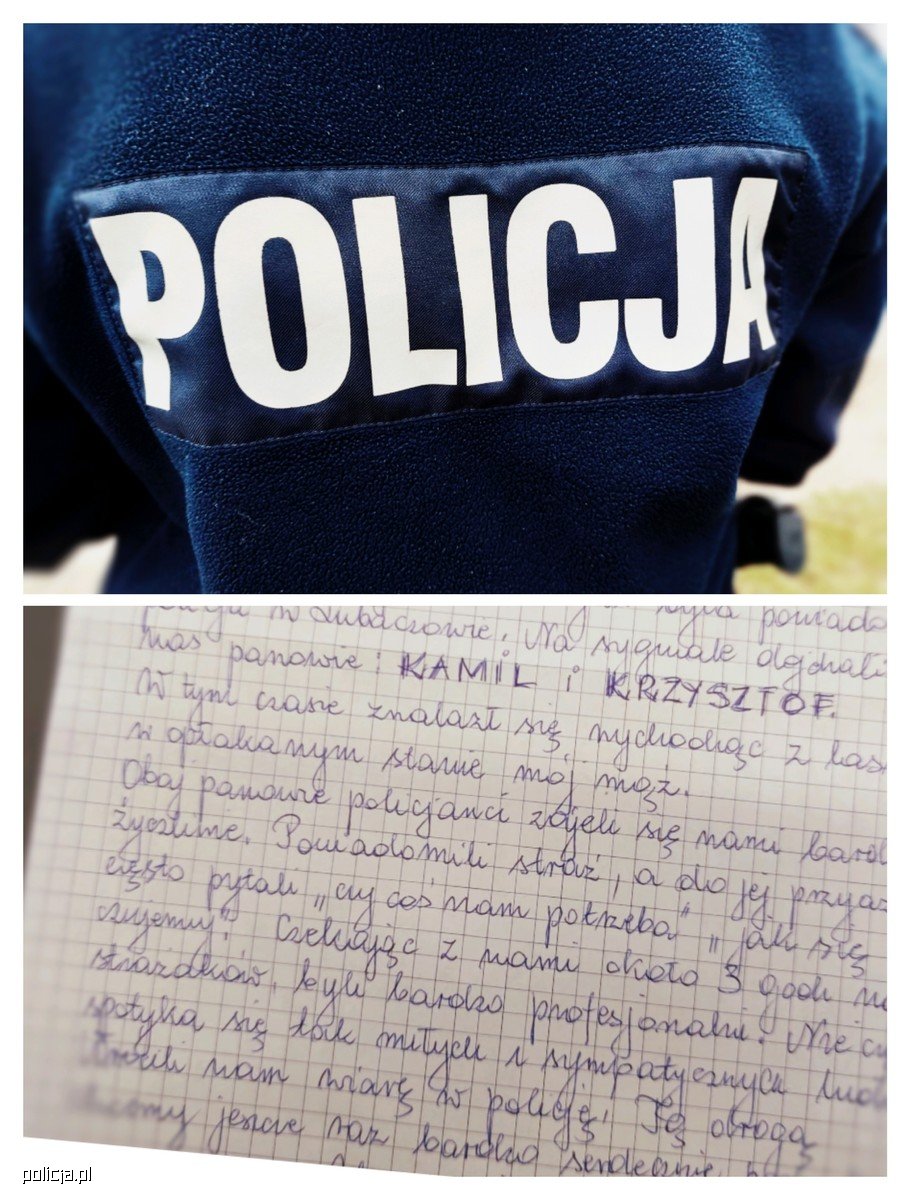 POLICJA
w Lubaczowie. Na sygnale dojchali
nas panowie: KAMIL i KRZYSZTOF.
W tym czasie znalazł się wychodząc z las
w opłakanym stanie mój mąż.
Obaj panowie policjanci zajeli się nami bard
życzliwie. Powiadomili straż, a do jej przyja
często pytali „czy coś nam potrzeba" „jak się
czujemy". Czekając z nami około 3 godz na
strażaków, byli bardzo profesjonalni. Nie cz
spotyka się tak miłych i sympatycznych lud
nam wiarę w policję. Tą drogą
jeszcze raz bardzo serdecznie
policja.pl